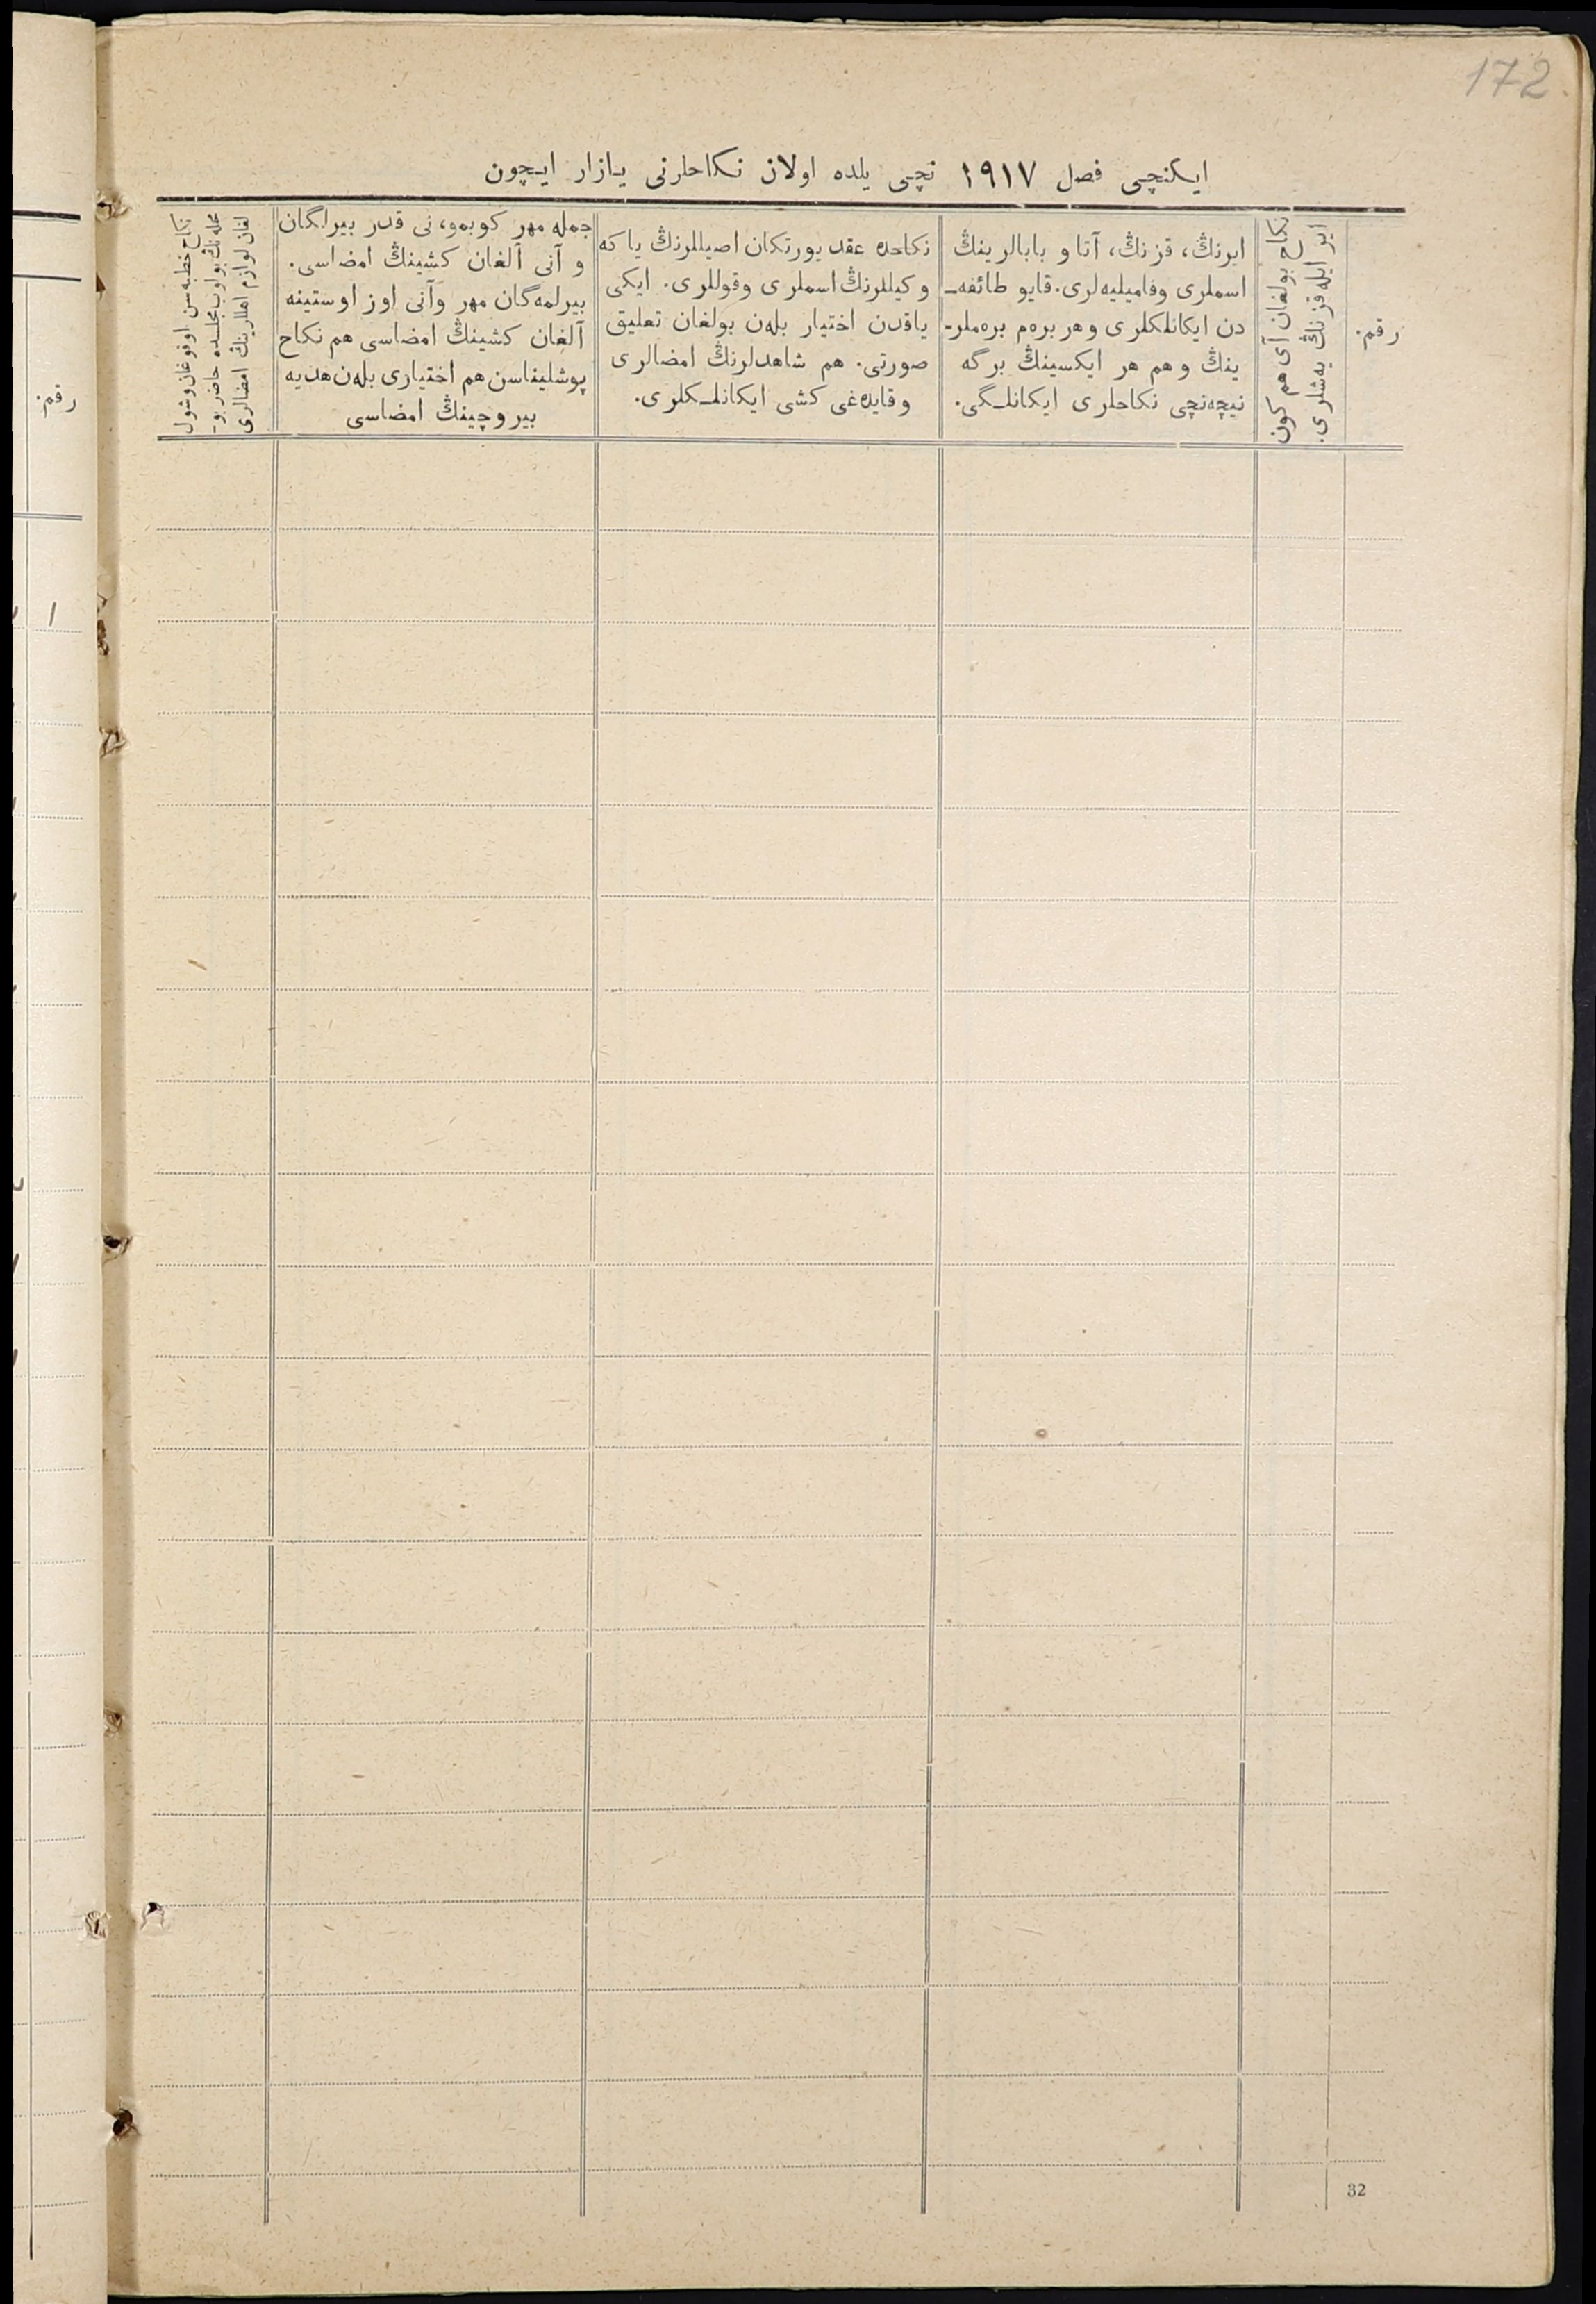 172
ایکنچی فصل ١٩١٧ نچی یلده اولان نکاحلرنی یازار ایچون
رقم.
نکاح بولغان آی هم کون
ایر ایله قزنڭ یه‌شلری.
ایرنڭ، قزنڭ، آتا و بابالرینڭ
اسملری وفامیلیه‌لری. قایو طائفه‌ـ
دن ایکانلکلری و هر بره‌م بره‌ملر-
ینڭ و هم هر ایکسینڭ برگه
نیچه‌نچی نکاحلری ایکانلـگی.
نکاحده عقد یورتکان اصیللرنڭ یا که
وکیللرنڭ اسملری وقوللری. ایکی
یاقدن اختیار بله‌ن بولغان تعلیق
صورتی. هم شاهدلرنڭ امضالری
وقایده‌غی کشی ایکانلـکلری.
جمله مهر کوبمو، نی قدر بیرلگان
و آنی آلغان کشینڭ امضاسی.
بیرلمه‌گان مهر و آنی اوز اوستینه
آلغان کشینڭ امضاسی هم نکاح
پوشلیناسن هم اختیاری بله‌ن هدیه
بیروچینڭ امضاسی
نکاح خطبه‌سن اوقوغان وشول
محله‌نڭ بولوب مجلسده حاضر بو-
لغان لوازم اهللرینڭ امضالری
رقم.
١
32